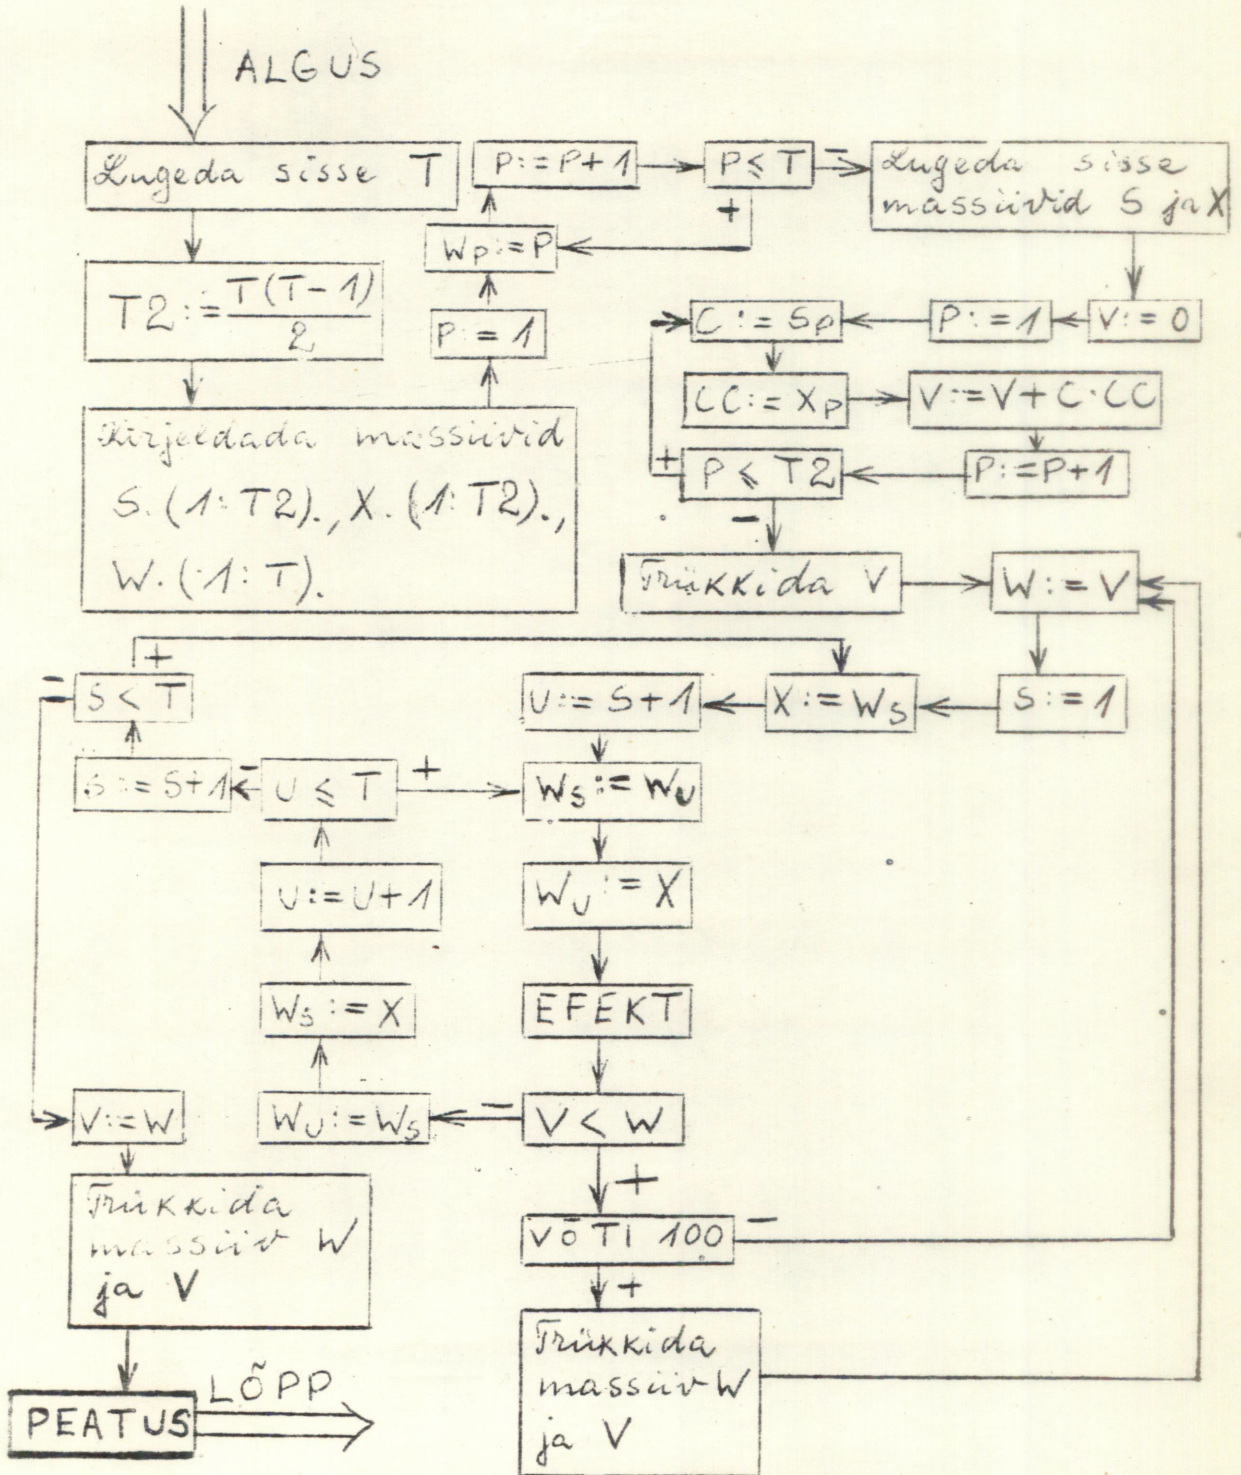 ALGUS
Lugeda sisse T
T2 := T(T-1)
2
Kirjeldada massiivid
S.(1:T2)., X.(1:T2).,
W.(1:T).
P:=1
Wp:=P
P:=P+1
P≤T
-
+
Lugeda sisse
massiivid S ja X
V:=0
P:=1
C:=Sp
CC:=Xp
V:=V+C·CC
P:=P+1
P ≤ T2
+
-
Trükkida V
W:=V
S:=1
X:=Ws
U:=S+1
Ws:=Wu
Wu:=X
EFEKT
V < W
-
+
Wu:=Ws
Ws:=X
U:=U+1
U ≤ T
+
-
S:=S+1
S < T
+
-
V:=W
Trükkida
massiiv W
ja V
PEATUS
LÕPP
VÕTI 100
-
+
Trükkida
massiiv W
ja V